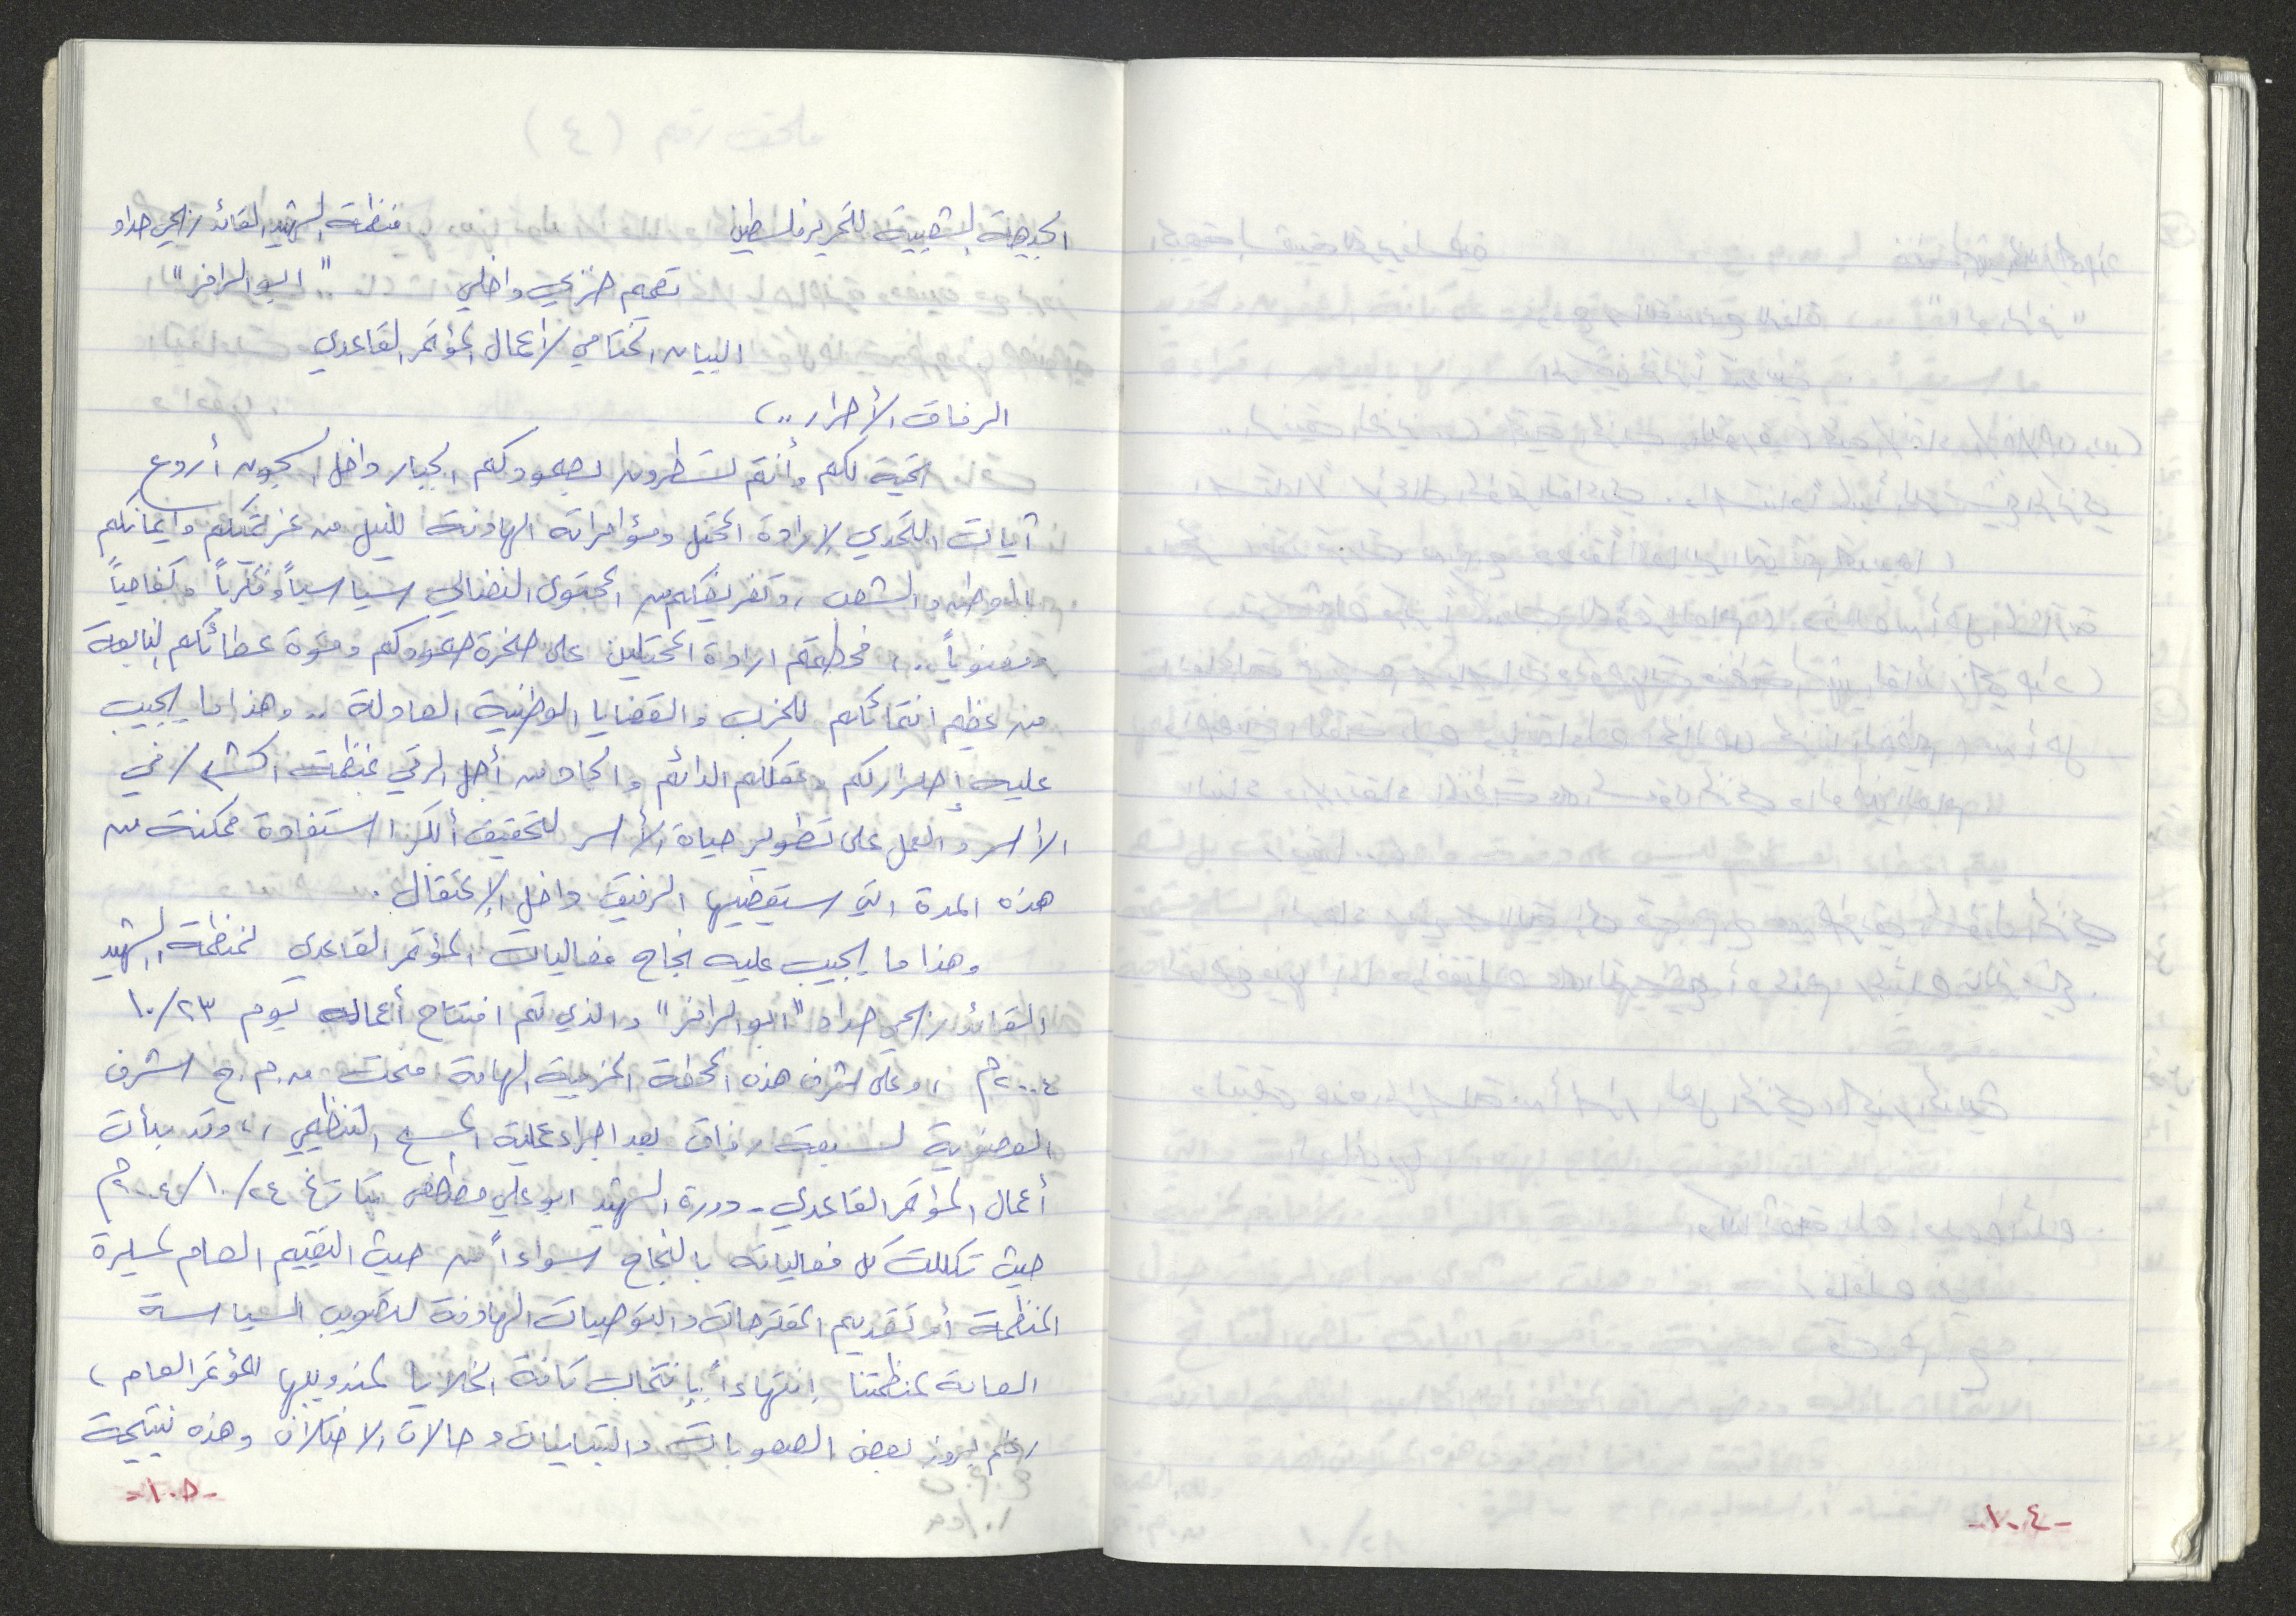 الجبهة الشعبية لتحرير فلسطين منظمة الشهيد القائد ربحي حداد
تعميم حزبي داخلي "ابو الرامز"
البيان الختامي لأعمال المؤتمر القاعدي
الرفاق الأحرار..،
تحية لكم وأنتم تسطرون بصمودكم الجبار داخل السجون أروع
آيات التحدي لإرادة المحتل ومؤامراته الهادفة للنيل من عزيمتكم وايمانكم
بالوطن والشعب، وتفريغكم من المحتوى النضالي سياسياً وفكرياً وكفاحياً
ومعنوياً..، فحطمتم ارادة المحتلين على صخرة صمودكم وقوة عطائكم النابعة
من عظيم انتمائكم للحزب والقضايا الوطنية العادلة.. وهذا ما يجيب
عليه إصراركم وعملكم الدائم والجاد من أجل الرقي بمنظمتكم في
الأسر والعمل على تطوير حياة الأسر لتحقيق أكبر استفادة ممكنة من
هذه المدة التي سيقضيها الرفيق داخل الإعتقال.
وهذا ما يجيب عليه نجاح فعاليات المؤتمر القاعدي لمنظمة الشهيد
القائد ربحي حداد "ابو الرامز" والذي تم افتتاح أعماله يوم ١٠/٢٣
٢٠٠٤م، وعلى شرف هذه المحطة الحزبية الهامة منحت م.م.ع شرف
العضوية لسبعة رفاق بعد اجراء عملية المسح التنظيمي،، وقد بدأت
أعمال المؤتمر القاعدي - دورة الشهيد ابو علي مصطفى بتاريخ ٢٤/١٠/٢٠٠٤م
حيث تكللت كل فعالياته بالنجاح سواءاً من حيث التقييم العام لمسيرة
المنظمة أو تقديم المقترحات والتوصيات الهادفة لتصويب السياسة
العامة لمنظمتنا إنتهاءاً بإنتخاب كافة الخلايا لمندوبيها للمؤتمر العام،
رغم بروز بعض الصعوبات والتباينات وحالات الاختلاف وهذه نتيجة
-١٠٥-
-١٠٤-